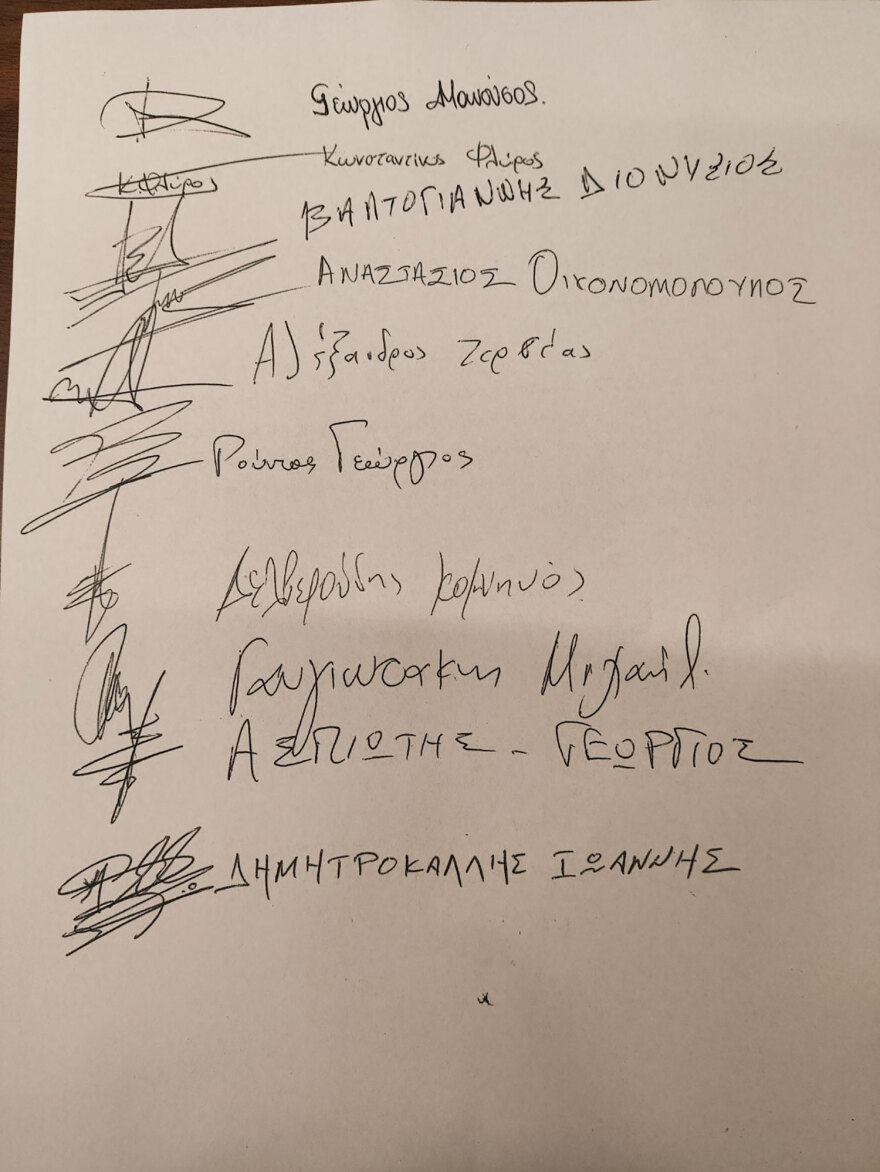 Γεώργιος Μανούσος.
Κωνσταντίνος Φλώρος
Κ. Φλώρος
ΒΑΛΤΟΓΙΑΝΝΗΣ ΔΙΟΝΥΣΙΟΣ
ΑΝΑΣΤΑΣΙΟΣ ΟΙΚΟΝΟΜΟΠΟΥΛΟΣ
Αλέξανδρος
Ρούντος Γεώργιος
Δελβερούδης Κομνηνός
Γαυγιωτάκης Μιχαήλ.
ΑΣΠΙΩΤΗΣ - ΓΕΩΡΓΙΟΣ
ΔΗΜΗΤΡΟΚΑΛΛΗΣ ΙΩΑΝΝΗΣ